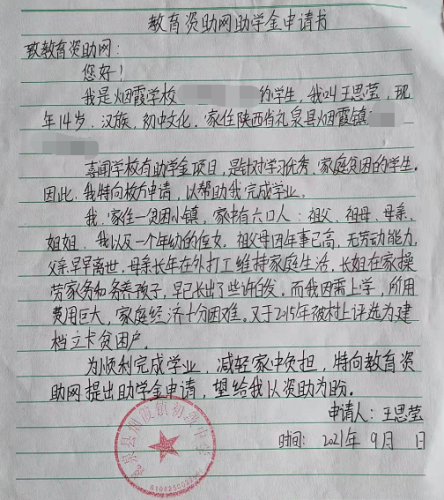 教育资助网助学金申请书
致教育资助网：
您好！
我是烟霞学校 的学生，我叫王思莹，现
年14岁，汉族，初中文化，家住陕西省礼泉县烟霞镇
喜闻学校有助学金项目，是针对学习优秀、家庭贫困的学生。
因此，我特向校方申请，以帮助我完成学业。
我，家住一贫困小镇，家中有六口人：祖父、祖母、母亲、
姐姐、我以及一个年幼的侄女，祖父母因年事已高，无劳动能力，
父亲早早离世，母亲长年在外打工维持家庭生活，长姐在家操
劳家务和务养孩子，早已长出了些许白发，而我因需上学，所用
费用巨大，家庭经济十分困难。又于2015年被村上评选为建
档立卡贫困户。
为顺利完成学业，减轻家中负担，特向教育资
助网提出助学金申请，望给我以资助为盼。
申请人：王思莹
时间：2021年9月 日